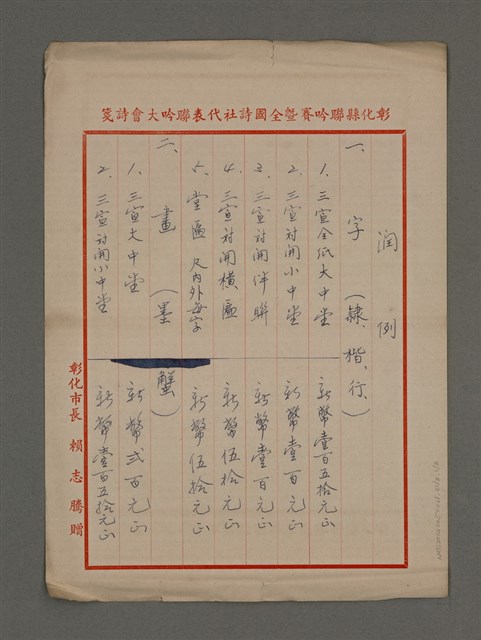 彰化縣聯吟賽暨全國詩社代表聯吟大會詩箋
潤例
一、字（隸、楷、行、）
1、三宣全紙大中堂 新幣壹百五拾元正
2、三宣対開小中堂 新幣壹百元正
3、三宣対開伴聯 新幣壹百元正
4、三宣対開橫匾 新幣伍拾元正
5、堂匾尺內外每字 新幣伍拾元正
二、畫（墨蟹）
1、三宣大中堂 新幣弍百元正
2、三宣対開小中堂 新幣壹百五拾元正
彰化市長 賴志騰贈